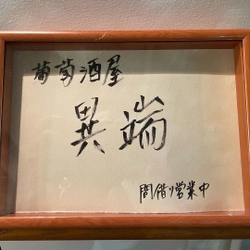 葡萄酒屋
異端
間借り営業中